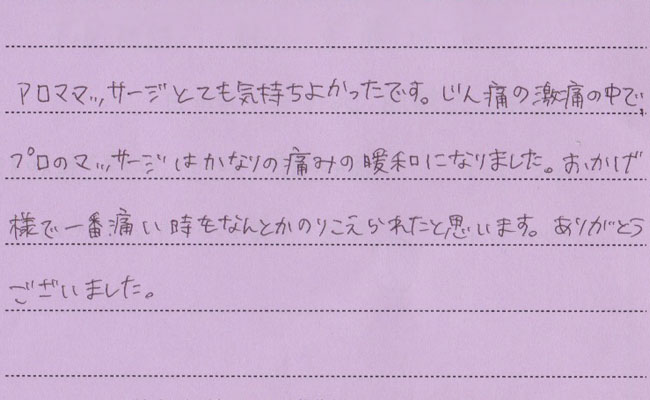 アロママッサージとても気持ちよかったです。じん痛の激痛の中で、
プロのマッサージはかなりの痛みの暖和になりました。おかげ
様で一番痛い時をなんとかのりこえられたと思います。ありがとう
ございました。